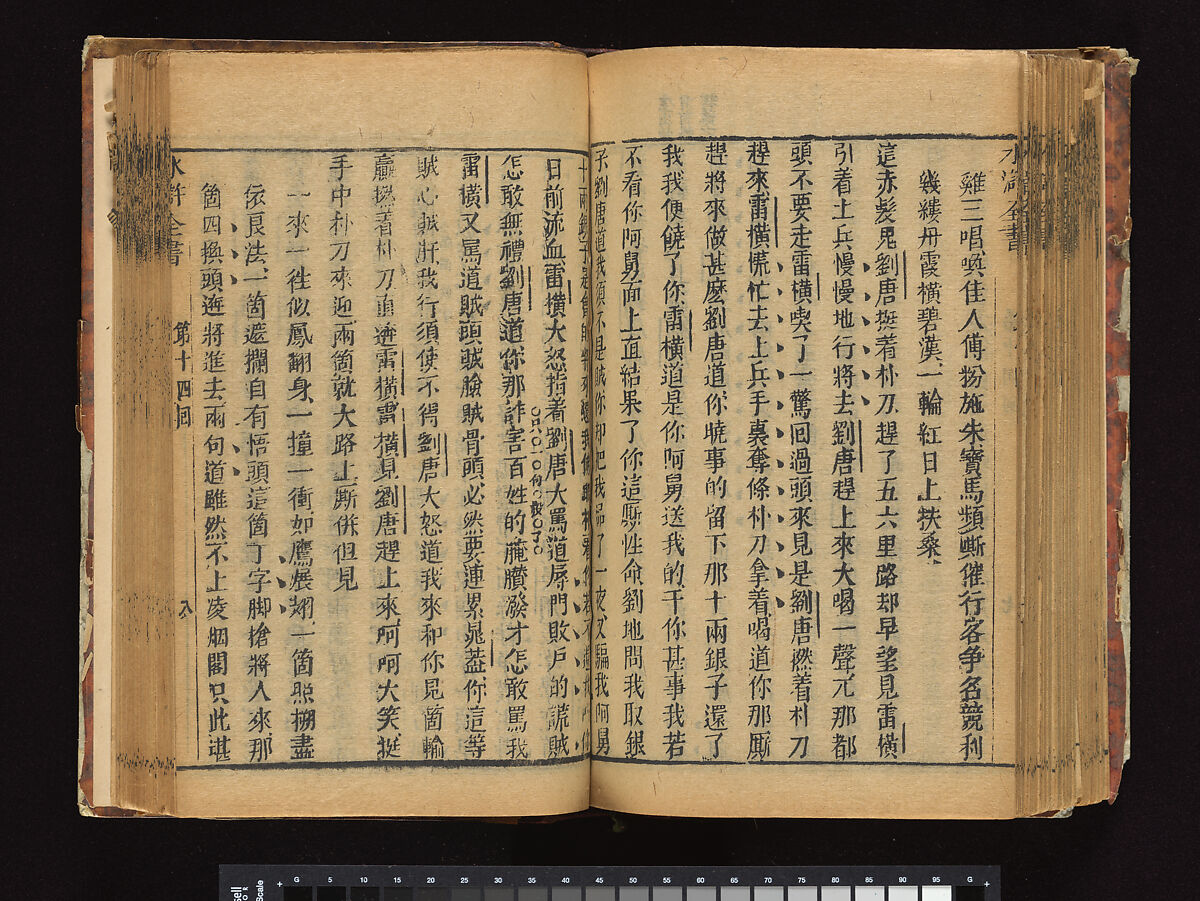 雞三唱喚佳人傅粉施朱寶馬頻嘶催行客爭名競利
幾縷丹霞橫碧漢一輪紅日上扶桑
這赤髮鬼劉唐挺着朴刀趕了五六里路却早望見雷橫
引着土兵慢慢地行將去劉唐趕上來大喝一聲兀那都
頭不要走雷橫喫了一驚回過頭來見是劉唐撚着朴刀
趕來雷橫慌忙去土兵手裏奪條朴刀拿着喝道你那厮
趕將來做甚麼劉唐道你曉事的留下那十兩銀子還了
我我便饒了你雷橫道是你阿舅送我的干你甚事我若
不看你阿舅面上直結果了你這厮性命剗地問我取銀
子劉唐道我須不是賊你却把我吊了一夜又騙我阿舅
十兩銀子是會的將來還我
日前流血雷橫大怒指着劉唐大罵道辱門敗戶的謊賊
怎敢無禮劉唐道你那詐害百姓的腌臢潑才怎敢罵我
雷橫又罵道賊頭賊臉賊骨頭必然要連累晁蓋你這等
賊心賊肝我行須使不得劉唐大怒道我來和你見箇輸
贏撚着朴刀直逩雷橫雷橫見劉唐趕上來呵呵大笑挺
手中朴刀來迎兩箇就大路上厮併但見
一來一徃似鳳翻身一撞一衝如鷹展翅一箇照搠盡
依良法一箇遮攔自有悟頭這箇丁字脚搶將入來那
箇四換頭逩將進去兩句道雖然不上凌烟閣只此堪
水滸全書
第十四回
八
水滸全書
G 5 10 15 20 25 30 35 40 45 50 55 60 65 70 75 80 85 90 95 G